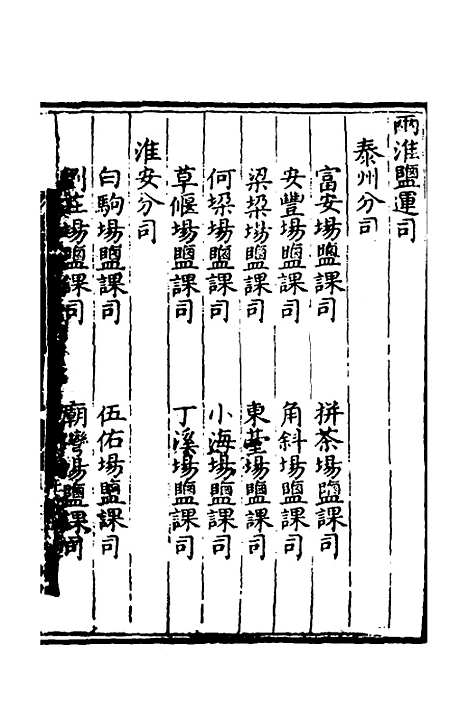 兩淮鹽運司
泰州分司
富安場鹽課司 拼茶場鹽課司
安豐場鹽課司 角斜場鹽課司
梁垜場鹽課司 東䑓場鹽課司
何垜場鹽課司 小海場鹽課司
草偃場鹽課司 丁溪場鹽課司
淮安分司
白駒場鹽課司 伍佑場鹽課司
劉莊場鹽課司 廟灣場鹽課司